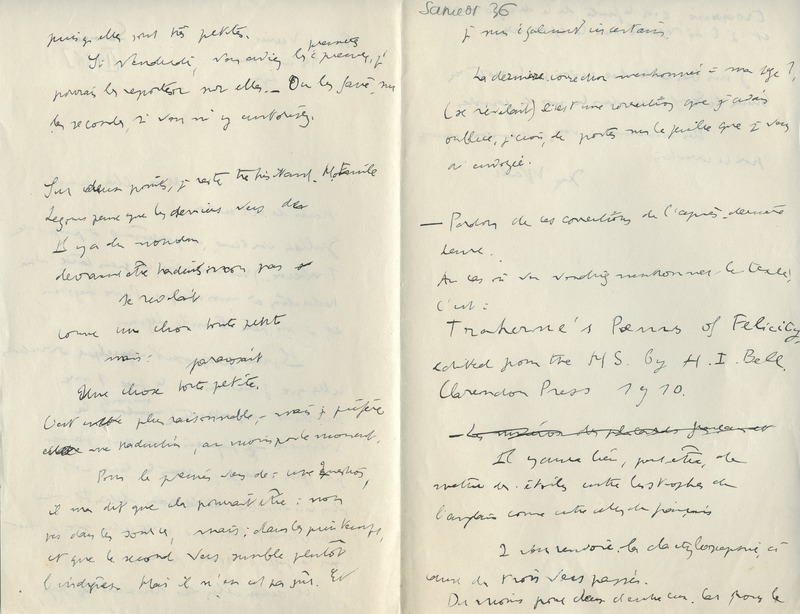 puisqu'elles sont très petites.
Si Vendredi, vous aviez les premières épreuves, je
pourrais les reporter sur elles. — Ou les faire, sur
les secondes, si vous m'y autorisez.
Sur deux points, je reste très hésitant.
Legouis pense que les derniers vers de
Il y a du
devraient être traduits non pas
se révélait
comme une chose toute petite
mais : paraissait
Une chose toute petite.
C'est plus raisonnable, – mais je préfère
ma traduction, au moins pour le moment.
Pour le premier vers de : une question,
il me dit que cela pourrait être : non
pas dans les sources, mais : dans les printemps,
et que le second vers semble plutôt
l'indiquer. Mais il n'en est pas sûr. Et
Samedi 36
j'en suis également incertain.
La dernière correction mentionnée = ma page 7,
(se révélait) c'est une correction que j'avais
oublié, je crois, de porter sur la feuille que je vous
ai envoyée.
— Pardon de ces corrections de l'après-dernière
heure.
Au cas où vous voudriez mentionner le texte,
c'est :
Traherne's Poems of Felicity
edited from the MS. by H. I. Bell.
Clarendon Press 1910.
Il y aura lieu, peut-être, de
mettre des étoiles entre les strophes de
l'anglais comme entre celles du français
Je vous renvoie la dactylographie, à
cause de trois vers passés.
Du moins pour deux d'entre eux,